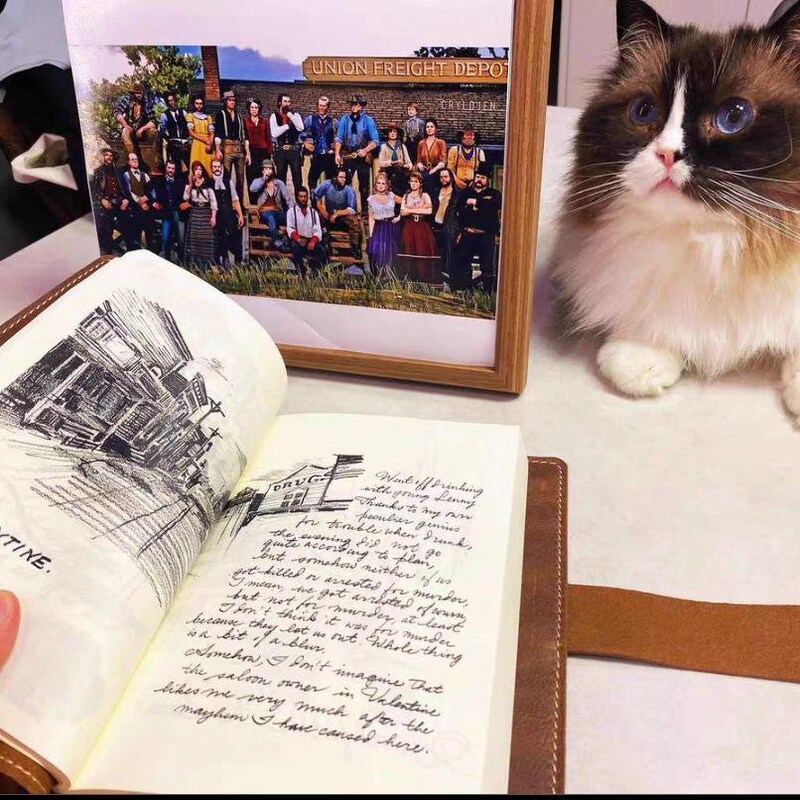 UNION FREIGHT DEPO
NTINE.
DRUGS
Went off drinking
with young Lenny
Thanks to my own
peculiar genius
for trouble when drunk,
the evening did not go
quite according to plan,
but somehow neither of us
got killed or arrested for murder,
I mean, we got arrested of course
but not for murder, at least
I don't think it was for murder
because they let us out. Whole thing
is a bit of a blur.
Somehow, I don't imagine that
the saloon owner in Valentine
likes me very much after the
mayhem I have caused here.